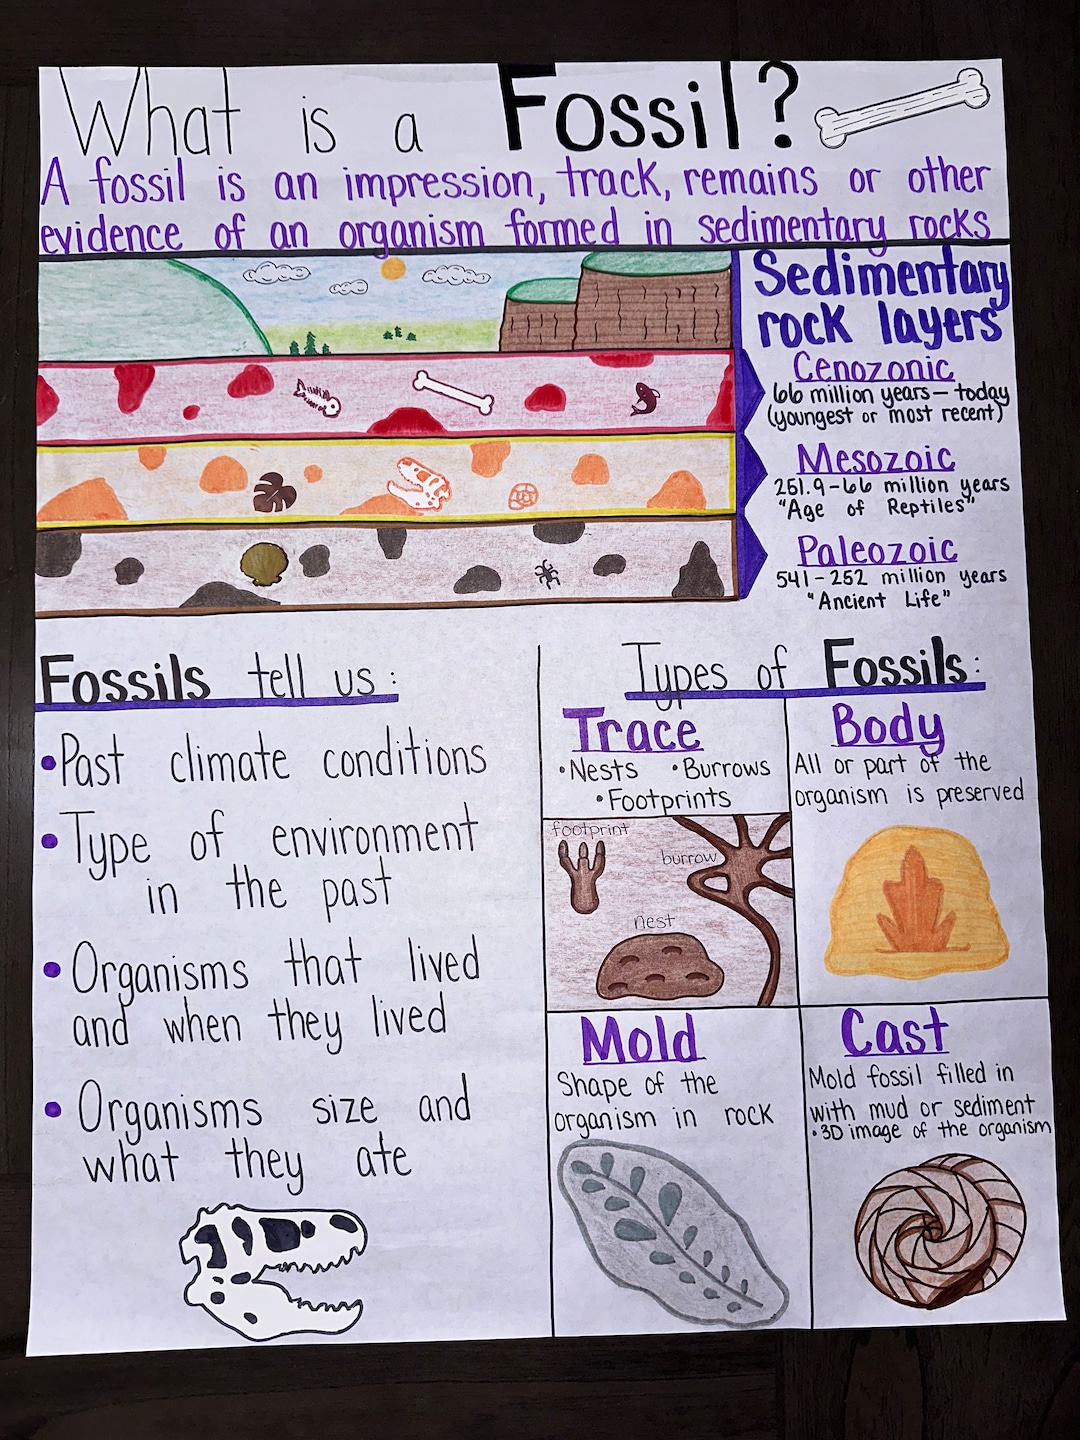 What is a Fossil?
A fossil is an impression, track, remains or other
evidence of an organism formed in sedimentary rocks
Sedimentary
rock layers
Cenozonic
66 million years—today
(youngest or most recent)
Mesozoic
251.9-66 million years
"Age of Reptiles"
Paleozoic
541-252 million years
"Ancient Life"
Fossils tell us:
•Past climate conditions
•Type of environment
in the past
•Organisms that lived
and when they lived
•Organisms size and
what they ate
Types of Fossils:
Trace
•Nests •Burrows
•Footprints
footprint
burrow
nest
Body
All or part of the
organism is preserved
Mold
Shape of the
organism in rock
Cast
Mold fossil filled in
with mud or sediment
•3D image of the organism